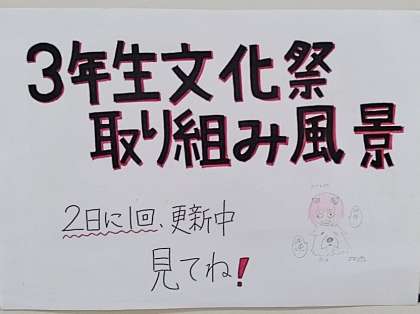 3年生文化祭
取り組み風景
2日に1回、更新中
見てね!